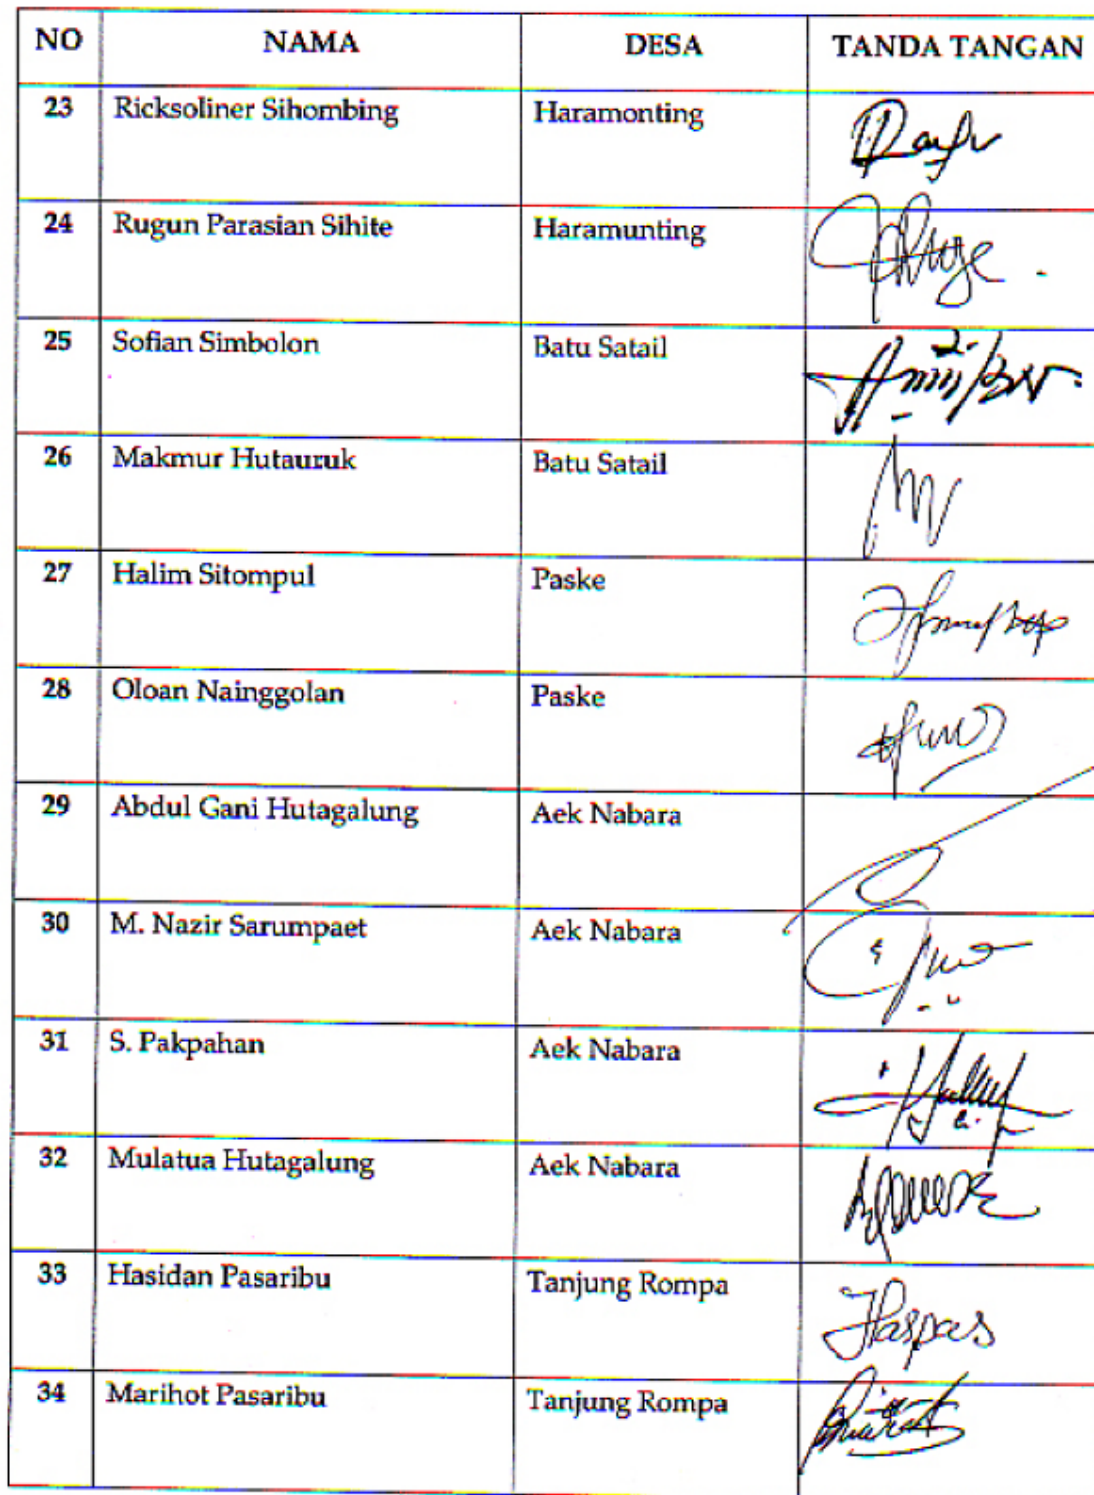 NO NAMA DESA TANDA TANGAN
23 Ricksoliner Sihombing Haramonting
24 Rugun Parasian Sihite Haramunting
25 Sofian Simbolon Batu Satail
26 Makmur Hutauruk Batu Satail
27 Halim Sitompul Paske
28 Oloan Nainggolan Paske
29 Abdul Gani Hutagalung Aek Nabara
30 M. Nazir Sarumpaet Aek Nabara
31 S. Pakpahan Aek Nabara
32 Mulatua Hutagalung Aek Nabara
33 Hasidan Pasaribu Tanjung Rompa Haspas
34 Marihot Pasaribu Tanjung Rompa